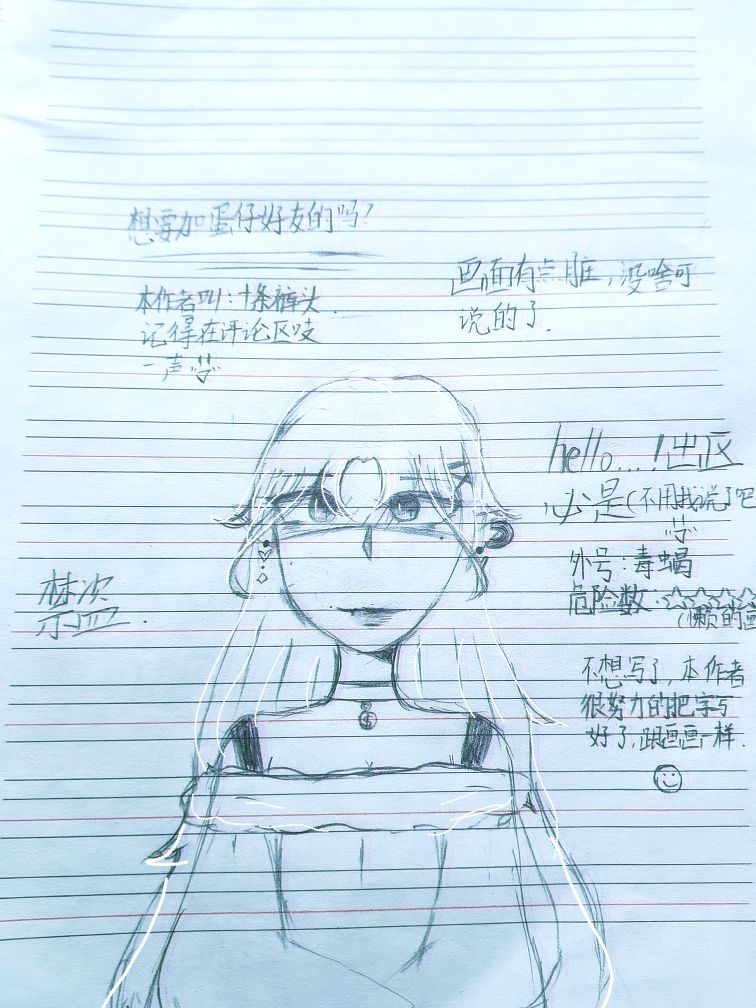 想要加蛋仔好友的吗?
本作者叫:十条裤头.
记得在评论区吱
一声
画面有点脏,没啥可
说的了.
hello...!出区
必是(不用我说了吧
外号:毒蝎
危险数:☆☆☆☆☆
(懒的画
不想写了,本作者
很努力的把字写
好了,跟画画一样.